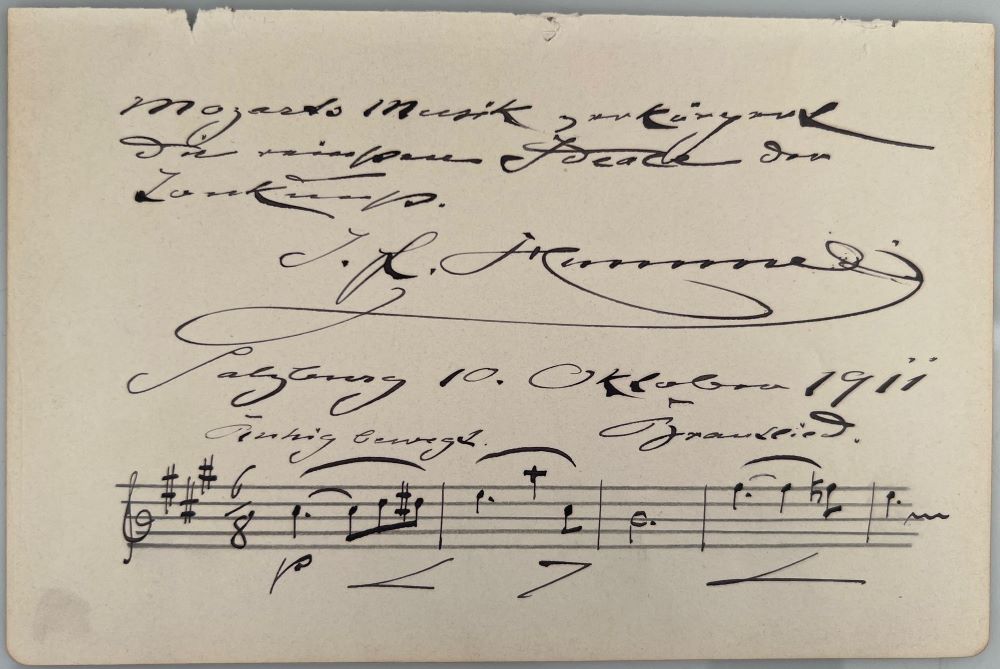 Mozarts Musik verkörpert
die reinsten Ideale der
Tonkunst.
J. F. Hummel
Salzburg 10. Oktober 1911
Ruhig bewegt. Brautlied.
6
8
p